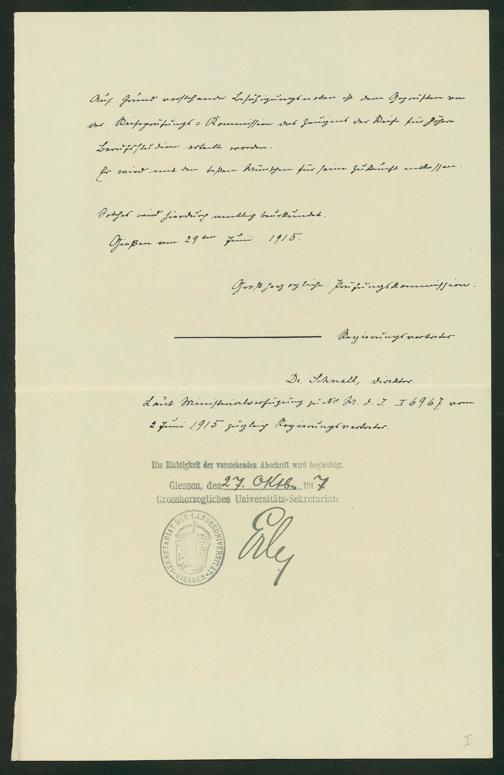 Auf Grund vorstehender Befähigungsnoten ist dem Geprüften von
der Reifeprüfungs-Kommission das Zeugnis der Reife für höhere
Berufsstudien erteilt worden.
Er wird mit den besten Wünschen für seine Zukunft entlassen.
Solches wird hierdurch amtlich beurkundet.
Gießen am 29ten Juni 1915.
Großherzogliche Prüfungskommission.
Regierungsvertreter
Dr. Schnell, Direktor.
Laut Ministerialverfügung zu No M. d. J. I 6967 vom
2 Juni 1915 zugleich Regierungsvertreter.
Die Richtigkeit der vorstehenden Abschrift wird beglaubigt.
Giessen, den 27. Oktb. 1917
Grossherzogliches Universitäts-Sekretariat:
SEKRETARIAT DER LANDESUNIVERSITÄT GIESSEN
I